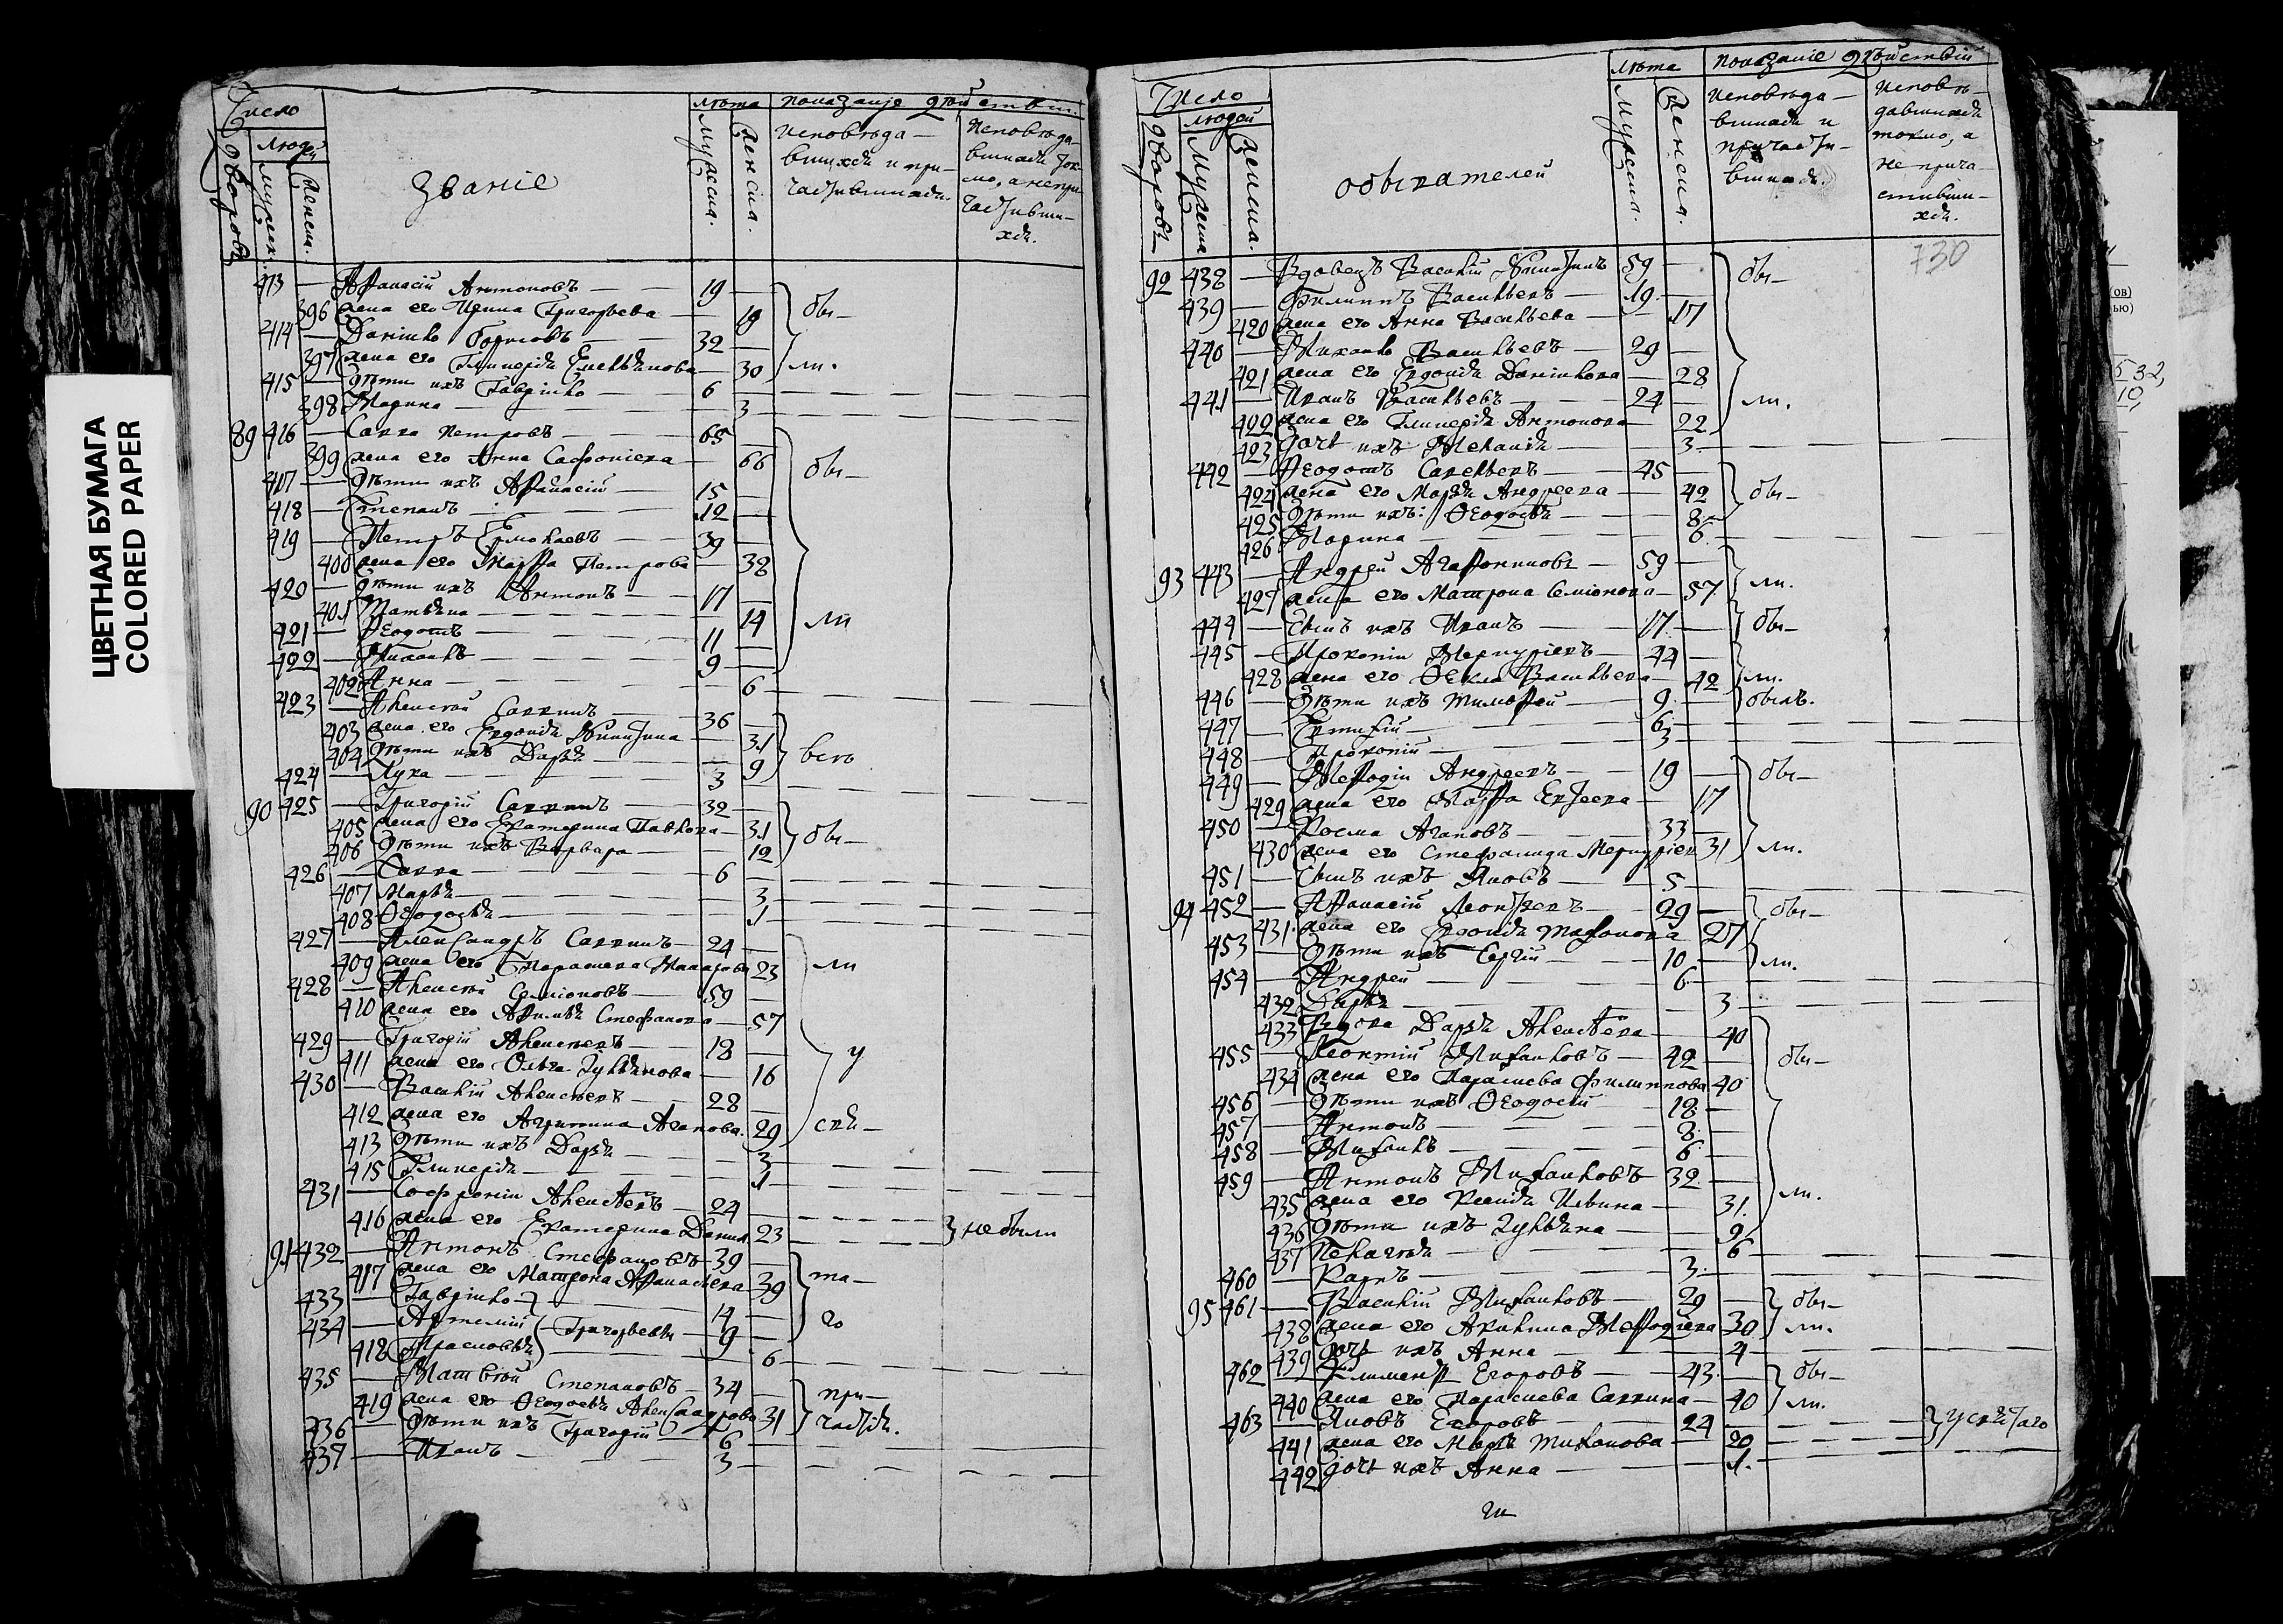 ЦВЕТНАЯ БУМАГА
COLORED PAPER
Число
дворовъ
людей
мужеск.
женск.
Званіе
лѣта
мужска.
женска.
показаніе действ
исповѣда-
вшихся и при-
частившихся.
исповѣда-
вшихся ток-
мо, а непри-
частивши-
хся.
413 — Афанасій Антоновъ — 19 —
396 жена его Ирина Григорьева — 19 бы-
414 — Данило Борисовъ — 32 —
397 жена его Гликерія Емельянова — 30 ли.
415 — дѣти ихъ Гаврило — 6
398 Марина — 3
89 416 — Савва Петровъ — 65 —
399 жена его Анна Сафоніева — 66 бы-
417 — дѣти ихъ Афанасій — 15 —
418 — Степанъ — 12 —
419 — Петръ Ермолаевъ — 39 —
400 жена его Марфа Петрова — 38
420 — дѣти ихъ Антонъ — 17 —
401 Татьяна — 14 ли
421 — Феодотъ — 11 —
422 — Михаилъ — 9 —
402 Анна — 6
423 — Алексѣй Саввинъ — 36 —
403 жена его Евдокія Никитина — 31
404 дѣти ихъ Дарья — 9 всѣ
424 — Лука — 3
90 425 — Григорій Саввинъ — 32 —
405 жена его Екатерина Павлова — 31
406 дѣти ихъ Варвара — 12 бы-
426 — Савва — 6
407 Марья — 3
408 Феодосья — 1
427 — Александръ Саввинъ — 24 —
409 жена его Параскева Макарова 23 ли
428 — Алексѣй Семіоновъ — 59 —
410 жена его Акилина Стефанова — 57
429 — Григорій Алексѣевъ — 18 —
411 жена его Ольга Лукьянова — 16 у
430 — Василій Алексѣевъ — 28 —
412 жена его Агрипина Агапова. 29 сей-
413 дѣти ихъ Дарья — 3
415 Гликерія — 1
431 — Софроніи Алексѣевъ — 24
416 жена его Екатерина Данил. 23 не были
91 432 — Антонъ Стефановъ — 39 —
417 жена его Матрона Афанасьева 39 та-
433 — Гаврило — 14 —
434 — Артемій Григорьевы — 9 — го
418 Прасковья — 6
435 — Матвѣй Степановъ — 34 —
419 жена его Феодосья Александрова 31 при-
436 — дѣти ихъ Григорій — 6 частія.
437 — Иванъ — 3
Число
дворовъ
людей
мужска
женска.
обывателей
лѣта
мужска.
женска.
показаніе действій
исповѣда-
вшихся и
причасти-
вшихся.
исповѣ-
давшихся
токмо, а
не прича-
стивши-
хся.
730
92 438 — Вдовецъ Василій Никитинъ 59 — бы-
439 — Филиппъ Васильевъ — 19 —
420 жена его Анна Васильева — 17
440 — Михаилъ Васильевъ — 29 —
421 жена его Евдокія Данилова — 28
441 — Иванъ Васильевъ — 24 — ли.
422 жена его Гликерія Антонова — 22
423 дочь ихъ Меланія — 3
442 — Феодотъ Савельевъ — 45 —
424 жена его Марья Андреева — 42 бы-
425 дѣти ихъ: Феодосья — 8
426 Марина — 6
93 443 — Андрей Агафониковъ — 59 —
427 жена его Матрона Семіонова — 57 ли.
444 — сынъ ихъ Иванъ — 17 — бы-
445 — Прокопіи Меркуріевъ — 44 —
428 жена его Фекла Васильева — 42 ли.
446 — дѣти ихъ Тимофей — 9 — былъ.
447 — Евтихій — 6
448 — Прокопій — 3
449 — Мефодіи Андреевъ — 19 — бы-
429 жена его Марфа Евсеева — 17
450 — Косма Агаповъ — 33 —
430 жена его Стефанида Меркуріев 31 ли.
451 — сынъ ихъ Яковъ — 5
94 452 — Афанасій Леонтьевъ — 29 — бы-
431 жена его Евдокія Тихонова 27
453 — дѣти ихъ Сергій — 10 — ли.
454 — Андрей — 6
432 Дарья — 3
433 Вдова Дарья Алексѣева — 40
455 — Леонтій Михайловъ — 42 — бы-
434 жена его Параскева Филиппова 40
456 — дѣти ихъ Феодосій — 12 —
457 — Антонъ — 8 —
458 — Михаилъ — 6 —
459 — Антонъ Михайловъ 32 —
435 жена его Ксенія Ильина — 31. ли.
436 дѣти ихъ Лукьяна — 9
437 Пелагея — 6
460 — Карпъ — 3
95 461 — Василій Михайловъ — 29 — бы-
438 жена его Акилина Мефодіева 30 ли.
439 дочь ихъ Анна — 4
462 — Климентъ Егоровъ — 43 — бы-
440 жена его Параскева Саввина — 40 ли.
463 — Яковъ Егоровъ — 24
441 жена его Марья Тихонова — 20 у сей таго
442 дочь ихъ Анна — 1.